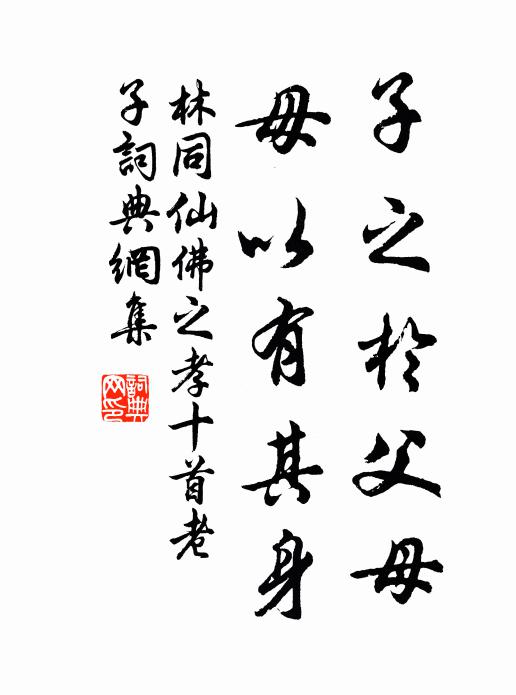 子之於父母
毋以有其身
林同仙佛之孝十首老
子詞典網集
詞典
网印